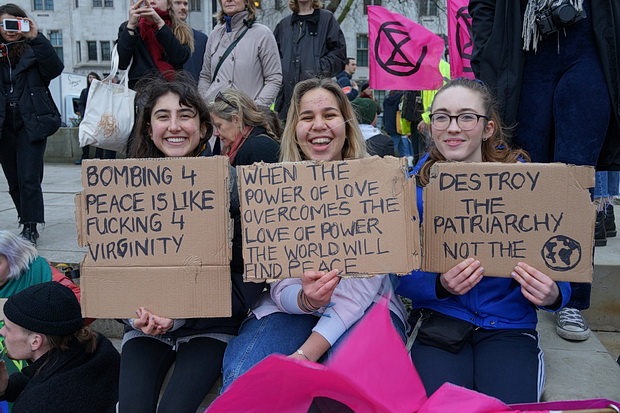 BOMBING 4
PEACE IS LIKE
FUCKING 4
VIRGINITY
WHEN THE
POWER OF LOVE
OVERCOMES THE
LOVE OF POWER
THE WORLD WILL
FIND PEACE
DESTROY
THE
PATRIARCHY
NOT THE